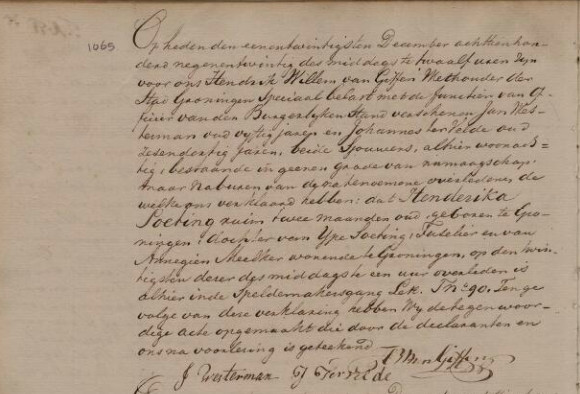 1065
Op heden den eenentwintigsten December achttienhon-
derd negenentwintig des middags te twaalf uren zijn
voor ons Hendrik Willem van Giffen Wethouder der
Stad Groningen Speciaal belast met de functien van Of-
ficier van den Burgerlyken Stand verschenen Jan Wes-
terman oud vyftig jaren en Johannes ter Velde oud
zesendertig jaren, beide Sjouwers, alhier woonach-
tig, bestaande in geenen graade van aanmaagschap,
maar Naburen van de natenoemene overledene, de
welke ons verklaard hebben: dat Henderika
Soebing ruim twee maanden oud, geboren te Gro-
ningen, dochter van Ype Soebing, Fuselier en van
Annegien Meekker wonende te Groningen, op den twin-
tigsten dezer des middags te een uur overleden is
alhier in de Speldemakersgang Lett. N:o 90. Tenge
volge van deze verklaring hebben Wy de tegenwoor-
dige acte opgemaakt die door de declaranten en
ons na voorlezing is geteekend.
J Westerman J Ter Velde